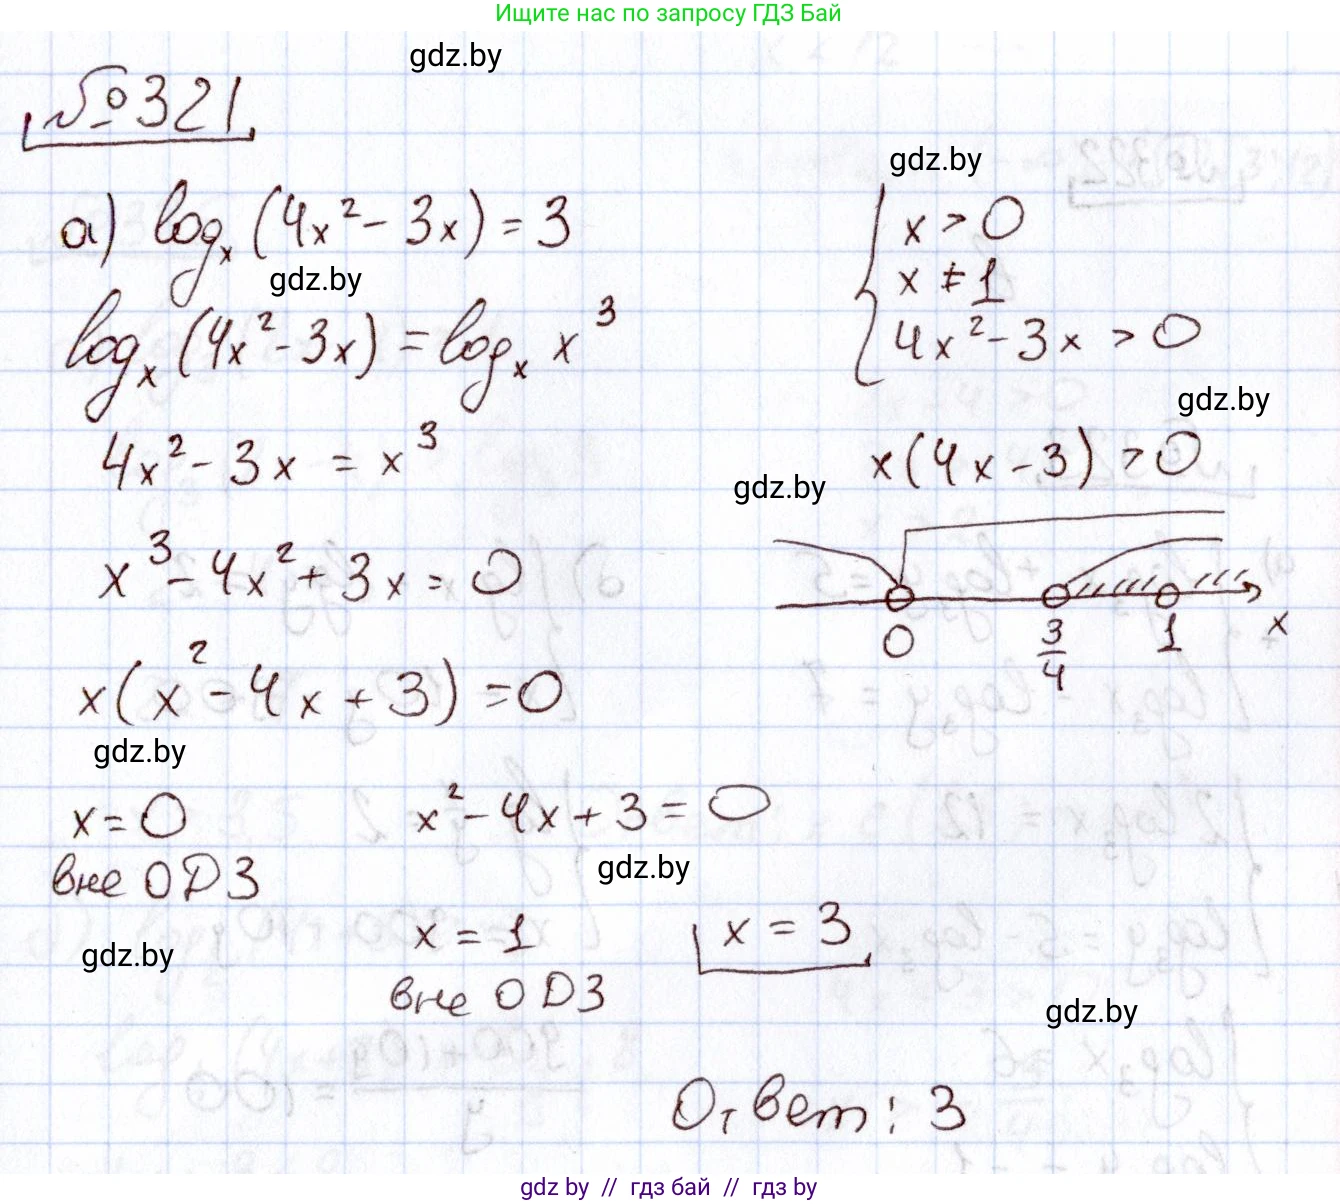 Ищите нас по запросу ГДЗ Бай
gdz.by
№321
gdz.by
а) log_x (4x² - 3x) = 3
x > 0
x ≠ 1
gdz.by
log_x (4x² - 3x) = log_x x³
4x² - 3x > 0
gdz.by
4x² - 3x = x³
x(4x - 3) > 0
gdz.by
x³ - 4x² + 3x = 0
0 3/4 1 x
x(x² - 4x + 3) = 0
gdz.by
x = 0 x² - 4x + 3 = 0
вне ОДЗ
gdz.by
x = 1 x = 3
gdz.by
вне ОДЗ
gdz.by
Ответ: 3
gdz by // гдз бай // гдз by